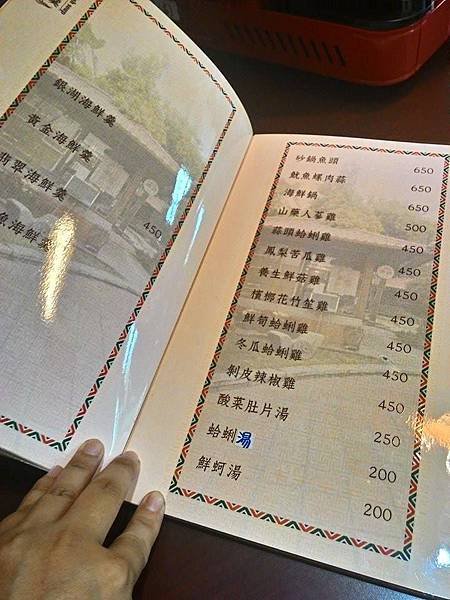 銀湖海鮮羹
黃金海鮮羹
翡翠海鮮羹 450
魚海鮮羹
砂鍋魚頭 650
魷魚螺肉蒜 650
海鮮鍋 650
山藥人蔘雞 500
蒜頭蛤蜊雞 450
鳳梨苦瓜雞 450
養生鮮菇雞 450
檳榔花竹笙雞 450
鮮筍蛤蜊雞 450
冬瓜蛤蜊雞 450
剝皮辣椒雞 450
酸菜肚片湯 250
蛤蜊湯 200
鮮蚵湯 200